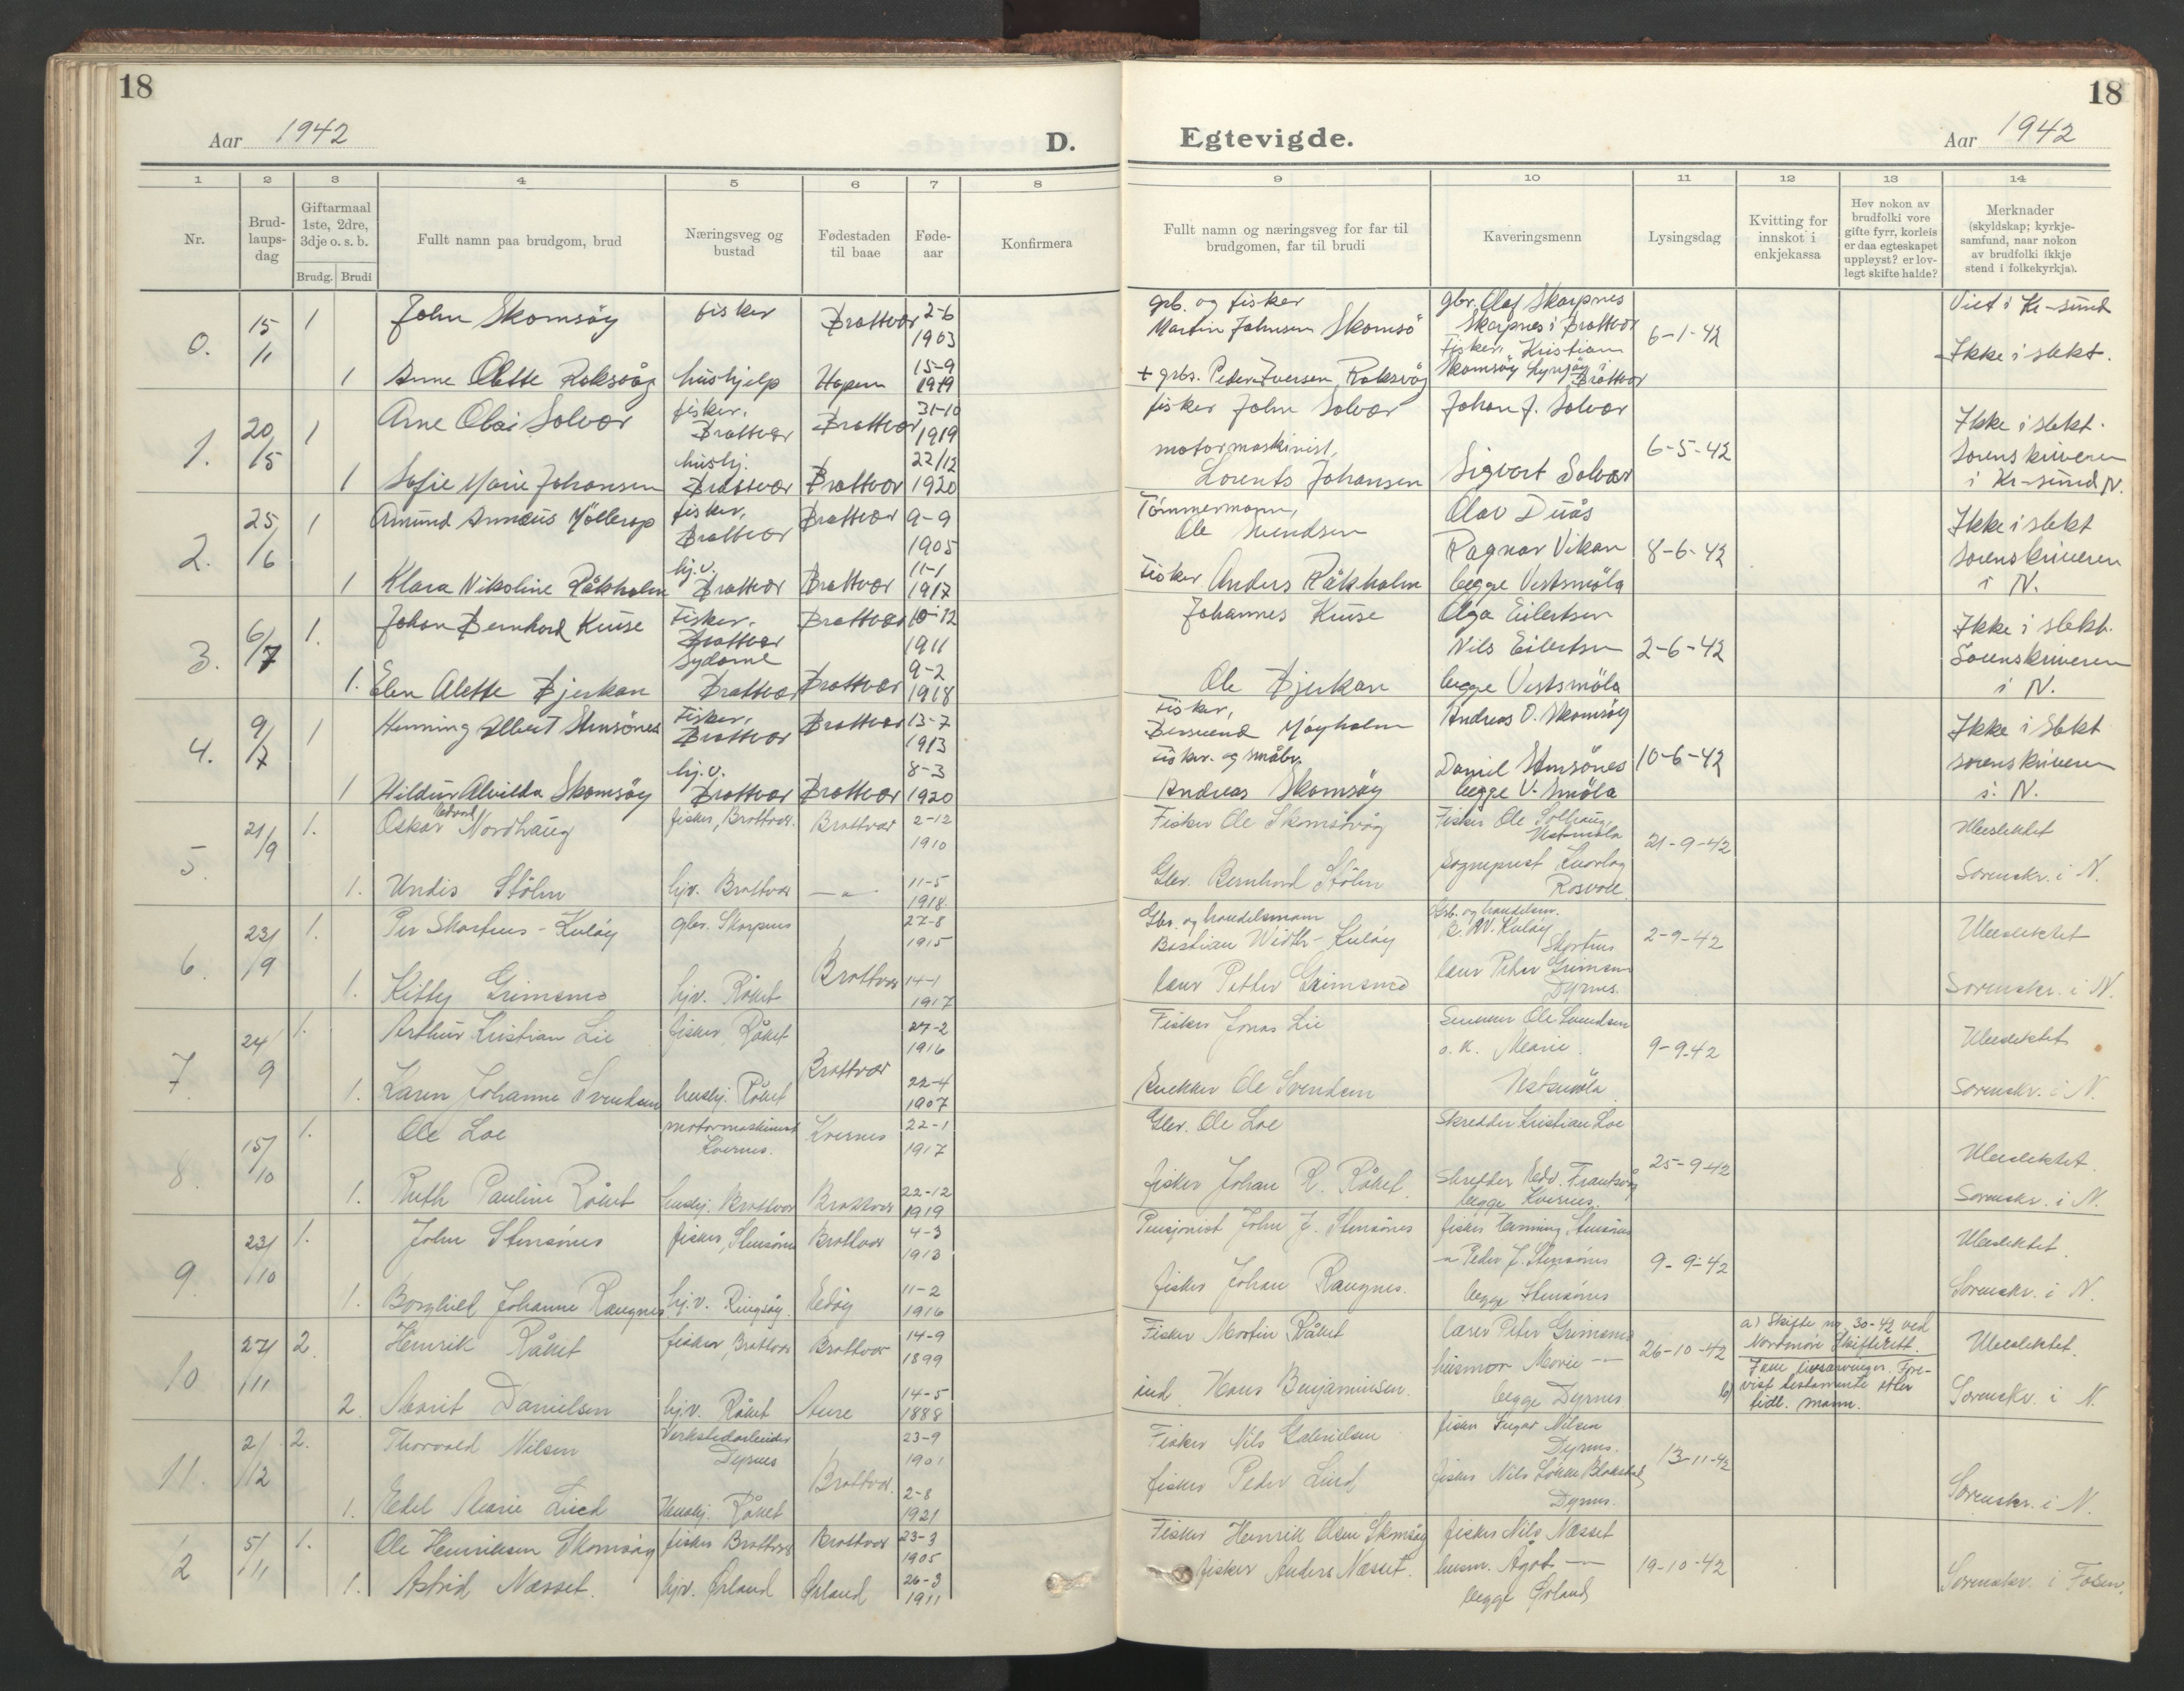 18
Aar 1942
D.
1 2 3 4 5 6 7 8
Nr.
Brud-
laups-
dag
Giftarmaal
1ste, 2dre,
3dje o. s. b.
Brudg. Brudi
Fullt namn paa brudgom, brud
Næringsveg og
bustad
Fødestaden
til baae
Føde-
aar
Konfirmera
0. 15/1 1 John Skomsöy fisker Brattvær 2-6
1903
1 Anne Olette Roksvåg hushjelp Hopen 15-9
1919
1. 20/5 1 Arne Olai Solvær fisker,
Brattvær Brattvær 31-10
1919
1 Sofie Marie Johansen hushj.
Brattvær Brattvær 22/12
1920
2. 25/6 1 Amund Annæus Möllerop fisker,
Brattvær Brattvær 9-9
1905
1 Klara Nikoline Råkholm hj.v.
Brattvær Brattvær 11-1
1917
3. 6/7 1. Johan Bernhard Kuse Fisker,
Brattvær Brattvær 10-12
1911
1. Elen Alette Bjerkan Sydame
Brattvær Brattvær 9-2
1918
4. 9/7 1 Henning Albert Stensönes Fisker,
Brattvær Brattvær 13-7
1913
1 Hildur Alvilda Skomsöy hj.v.
Brattvær Brattvær 8-3
1920
5. 21/9 1. Oskar Nordhaug fisker, Brattvær. Brattvær 2-12
1910
1. Undis Stölen hjv. Brattvær — " — 11-5
1918
6. 23/9 1. Per Skarpnes - Kulöy gbr. Skarpnes Brattvær 27-8
1915
1. Kitty Grimsmo hjv. Råket 14-1
1917
7. 24/9 1. Arthur Kristian Lie fisker, Råket Brattvær 27-2
1916
1. Karen Johanne Svendsen hushj. Råket 22-4
1907
8. 15/10 1. Ole Loe motormaskinist
Kvernes. Kvernes 22-1
1917
1. Ruth Pauline Råket hushj. Brattvær Brattvær 22-12
1919
9. 23/10 1. John Stensönes fisker, Stensönes Brattvær 4-3
1913
1. Borghild Johanne Raugnes hj.v. Ringsöy. Edöy 11-2
1916
10 27/11 2. Henrik Råket fisker, Brattvær Brattvær 14-9
1899
2. Marit Danielsen hj.v. Råket Aure 14-5
1888
11. 2/12 2. Thorvald Nilsen Verkstedarbeider
Dyrnes Brattvær. 23-9
1901
1. Edel Marie Lied Hushj. Råket 2-8
1921
12 5/11 1. Ole Henriksen Skomsöy fisker Brattvær Brattvær 23-3
1905
1. Astrid Næsset. hjv. Ørland Ørland 26-3
1911
18
Egtevigde.
Aar 1942
9 10 11 12 13 14
Fullt namn og næringsveg for far til
brudgomen, far til brudi
Kaveringsmenn
Lysingsdag
Kvitting for
innskot i
enkjekassa
Hev nokon av
brudfolki vore
gifte fyrr, korleis
er daa egteskapet
uppløyst? er lov-
legt skifte halde?
Merknader
(skyldskap; kyrkje-
samfund, naar nokon
av brudfolki ikkje
stend i folkekyrkja).
grb. og fisker
Martin Johnsen Skomsö
gbr. Olaf Skarpnes
Skarpnes i Brattvær
6-1-42
Viet i Kr-sund
+ grbr. Peder Iversen Roksvåg
Fisker, Kristian
Skomsöy Lyngöy Brattvær
Ikke i slekt.
fisker John Solvær
Johan J. Solvær
6-5-42
Ikke i slekt.
motormaskinist,
Lorents Johansen
Sigvart Solvær
Sorenskriveren
i Kr-sund N.
Tömmermann,
Ole Svendsen
Olav Duås
Ragnar Vikan
8-6-42
Ikke i slekt
Sorenskriveren
i N.
Fisker Anders Råkholm
begge Vestsmöla
Johannes Kuse
Olga Eilertsen
Nils Eilertsen
2-6-42
Ikke i slekt.
Sorenskriveren
i N.
Ole Bjerkan
begge Vestsmöla
Fisker,
Bersvend Möyholm
Andreas O. Skomsöy
10-6-42
Ikke i slekt
Sorenskriveren
i N.
Fisker og småbr.
Andreas Skomsöy
Daniel Stensönes
begge V. Smöla
Fisker Ole Skomsövåg
Fisker Ole Solhaug,
Vestsmöla
21-9-42
Ubeslektet
Gbr. Bernhard Stölen
Sogneprest
Rosvoll
Sorenskr. i N.
Gbr. og handelsmann
Bastian Width - Kulöy
Grb. og handelsm.
B. W. Kulöy
Skarpnes
2-9-42
Ubeslektet
lærer Petter Grimsmo
lærer Peter Grimsmo
Dyrnes.
Sorenskr. i N.
Fisker Jonas Lie
Ole Svendsen
o. k. Marie.
9-9-42
Ubeslektet
Snekker Ole Svendsen
Vestsmöla
Sorenskr. i N.
Gbr. Ole Loe
Skredder Kristian Loe
25-9-42
Ubeslektet.
fisker Johan R. Råket.
skredder Edv. Frantsvåg
begge Kvernes.
Sorenskr. i N.
Pensjonist John J. Stensönes
fisker Henning Stensönes
— " Peder J. Stensönes
9-9-42
Ubeslektet.
fisker Johan Raugnes.
begge Stensönes
Sorenskr. i N.
Fisker Martin Råket
lærer Peter Grimsmo
husmor Marie — " —
26-10-42
a) Skifte nr. 30-42 ved
Nordmöre Skifterett.
Ubeslektet.
ind. Hans Benjaminsen.
begge Dyrnes
b) livsarvinger. Fre-
vist testamente etter
fidl. mann.
Sorenskr. i N.
Fisker Nils Gabrielsen
fisker Ingar Nilsen
Dyrnes.
13-11-42
fisker Peder Lied
fisker Nils Lökke Blakstad
Dyrnes.
Sorenskr. i N.
Fisker Henrik Olsen Skomsöy
fisker Nils Næsset
19-10-42
fisker Anders Næsset.
husm. Ågot — " —
begge Ørland
Sorenskr. i Fosen.